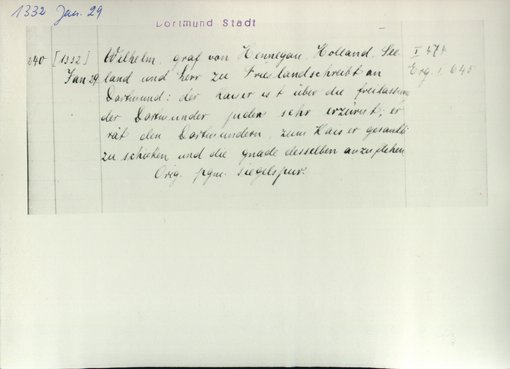 1332 Jan. 29
Dortmund Stadt
240 [1332] Wilhelm, graf von Hennegau, Holland, See- I 474
Jan 29. land und herr zu Friesland schreibt an Erg. I. 645
Dortmund: der kaiser ist über die freilassung
der Dortmunder juden sehr erzürnt; er
rät den Dortmundern, zum Kaiser gesandte
zu schicken und die gnade desselben anzuflehen
Orig. pgm. siegelspur.